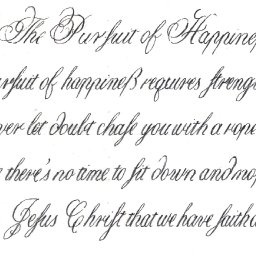 The Purſuit of Happineſ
rſuit of happineß requires ſtreng
ver let doubt chaſe you with a rope
there's no time to ſit down and mop
Jeſus Chriſt that we have faith